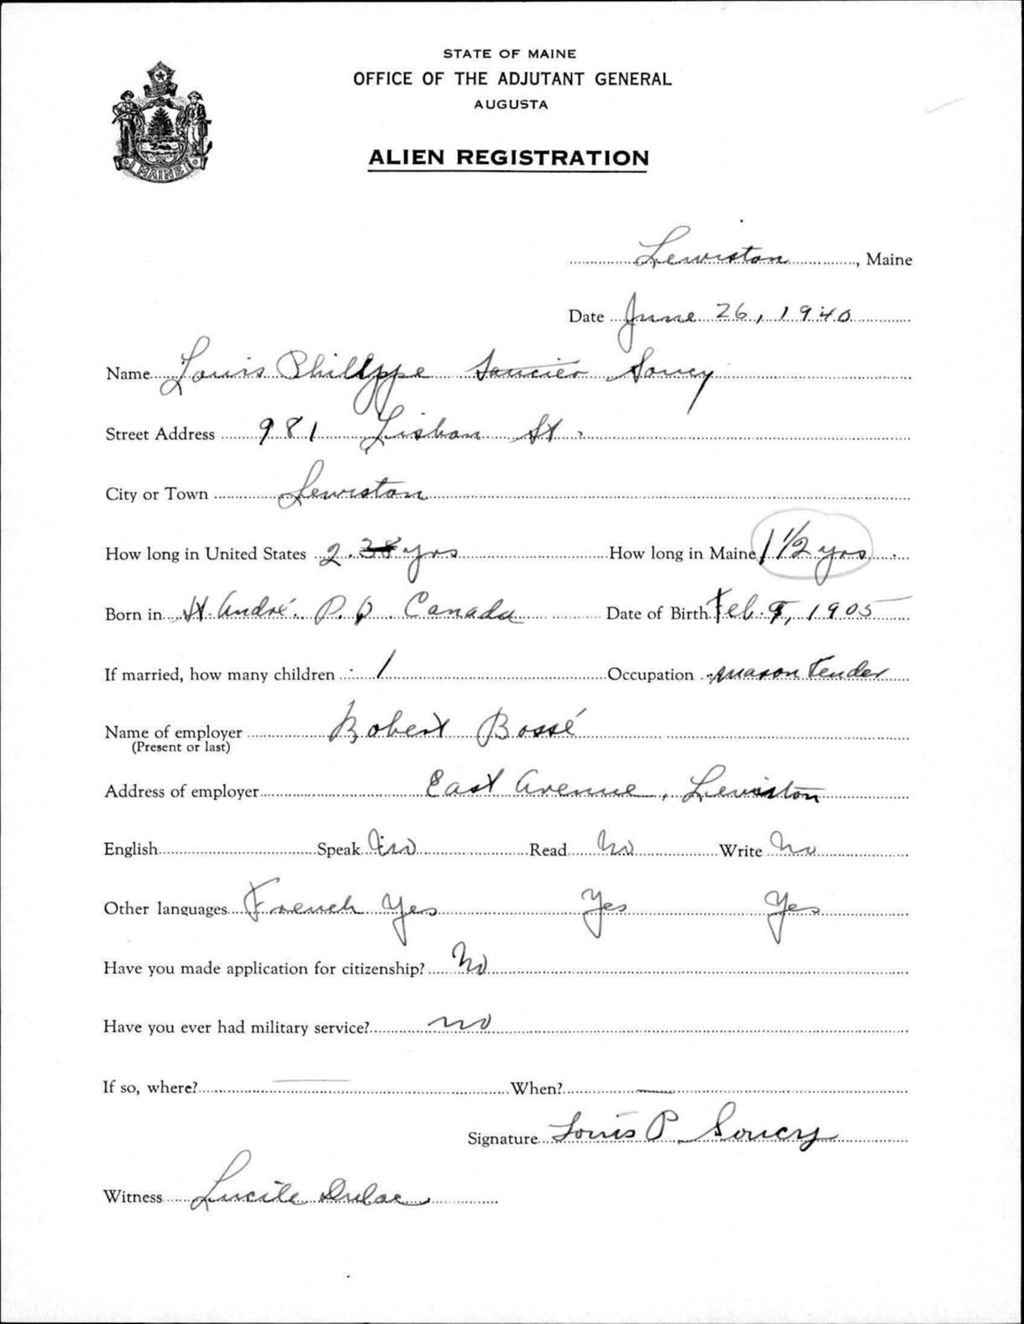 STATE OF MAINE
OFFICE OF THE ADJUTANT GENERAL
AUGUSTA
ALIEN REGISTRATION
MAINE
Lewiston, Maine
Date June 26, 1940
Name Louis Phillppe Saucier Soucy
Street Address 981 Lisbon St.
City or Town Lewiston
How long in United States 2 yrs How long in Maine 1 1/2 yrs
Born in St André. P. Q. Canada Date of Birth Feb. 8, 1905
If married, how many children 1 Occupation mason tender
Name of employer Robert Bossé
(Present or last)
Address of employer East Avenue, Lewiston
English Speak No Read No Write No
Other languages French Yes Yes Yes
Have you made application for citizenship? No
Have you ever had military service? no
If so, where? When?
Signature Louis P. Soucy
Witness Lucile Dulac